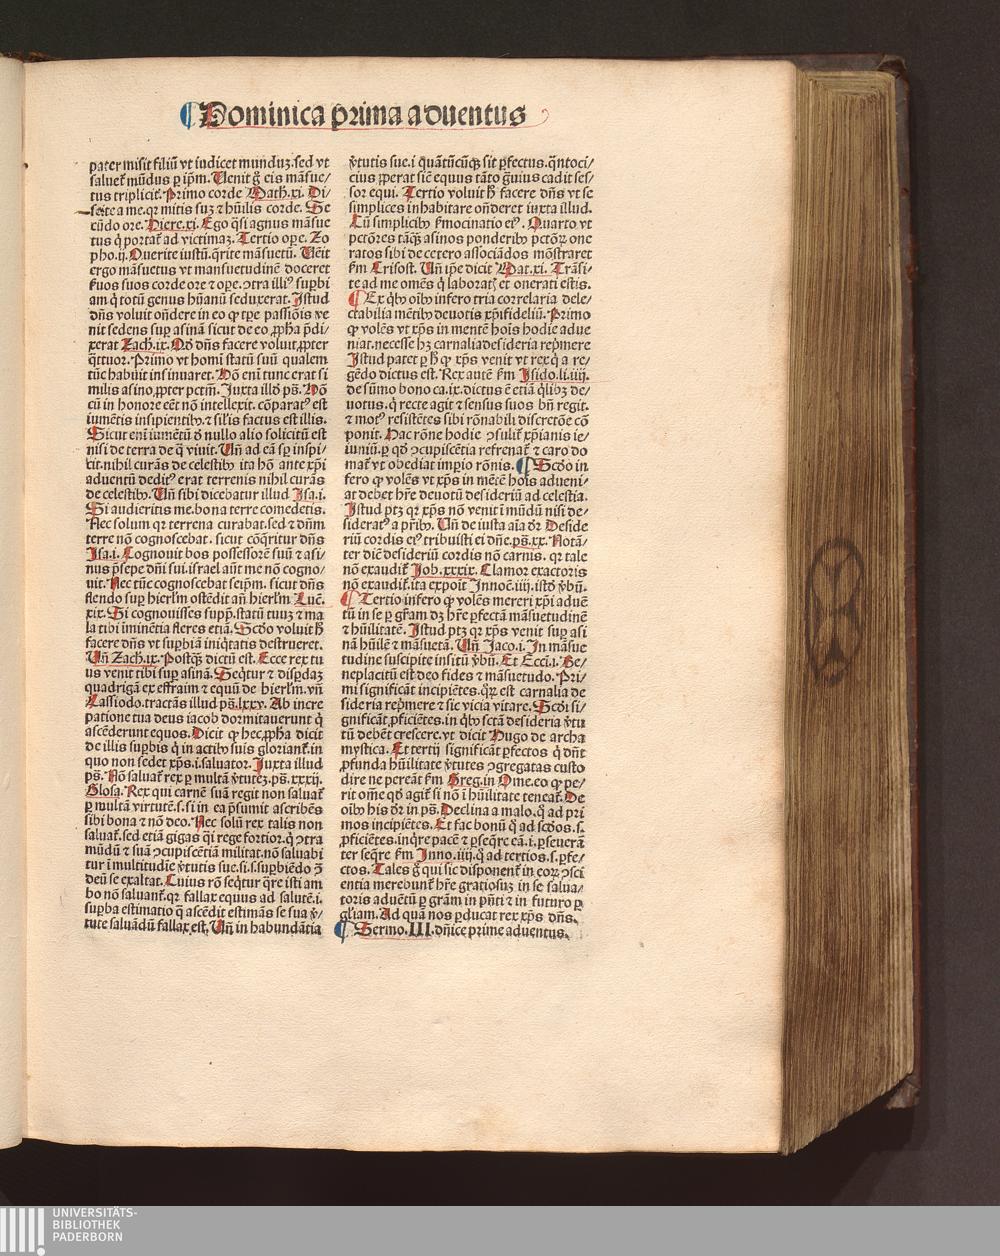 Dominica prima aduentus
pater misit filiū vt iudicet munduz. sed vt
saluet᷑ mūdus ꝑ ip̄m. Uenit g̊ eis māsue/
tus triplicit᷑. Primo corde Math. xi. Di/
scite a me. qꝛ mitis suz ⁊ hūilis corde. Se
cūdo ore. Hiere. xi. Ego q̄si agnus māsue
tus q̇ portat᷑ ad victimaz. Tertio oꝑe. Zo
pho. ij. Querite iustū. q̄rite māsuetū. Uēit
ergo māsuetus vt mansuetudinē doceret
suos corde ore ⁊ oꝑe. ꝯtra illiꝰ suꝑbi
am q̇ totū genus hūanū seduxerat. Istud
dn̄s voluit on̄dere in eo ꝙ tꝑe passiōis ve
nit sedens suꝑ asinā sicut de eo ꝓph̄a p̄di/
xerat Zach. ix. Qd̊ dn̄s facere voluit ꝓpter
q̄ttuor. Primo vt homī statū suū qualem
tūc habuit insinuaret. Hō enī tunc erat si
milis asino ꝓpter pctm̄. Iuxta illd̓ ps̄. Hō
cū in honore eēt nō intellexit. cōparatꝰ est
iumētis insipientibꝫ ⁊ sil̓is factus est illis.
Sicut enī iumētū d̓ nullo alio solicitū est
nisi de terra de q̄ viuit. Un̄ ad eā sꝑ inspi/
cit. nihil curās de celestibꝫ ita hō ante xp̄i
aduentū deditꝰ erat terrenis nihil curās
de celestibꝫ. Un̄ sibi dicebatur illud Isa. i.
Si audieritis me. bona terre comedetis.
Nec solum qꝛ terrena curabat. sed ⁊ dn̄m
terre nō cognoscebat. sicut cōq̄ritur dn̄s
Isa. i. Cognouit bos possessorē suū ⁊ asi/
nus p̄sepe dn̄i sui. israel aūt me nō cogno/
uit. Nec tūc cognoscebat seip̄m. sicut dn̄s
flendo suꝑ hierl̓m ostēdit an̄ hierl̓m Luc̄.
xix. Si cognouisses supp. statū tuuz ⁊ ma
la tibi iminētia fleres etiā. Scd̓o voluit h̓
facere dn̄s vt suꝑbiā iniq̇tatis destrueret.
Un̄ Zach. ix. Postq̄ dictū est. Ecce rex tu
us venit tibi suꝑ asinā. Seq̇tur ⁊ disꝑdaz
quadrigā ex effraim ⁊ equū de hierl̓m. vn̄
Cassiodo. tractās illud ps̄. lxxv. Ab incre
patione tua deus iacob dormitauerunt q̇
ascēderunt equos. Dicit ꝙ hec ꝓph̄a dicit
de illis suꝑbis q̇ in actibꝫ suis gloriant᷑. in
quo non sedet xp̄s. i. saluator. Iuxta illud
ps̄. Nō saluat᷑ rex ꝑ multā v̓tutez. ps̄. xxxij.
Glosa. Rex qui carnē suā regit non saluat᷑
ꝑ multā virtutē. s. si in ea p̄sumit ascribēs
sibi bona ⁊ nō deo. Nec solū rex talis non
saluat᷑. sed etiā gigas qi̇ rege fortior. q̇ ꝯtra
mūdū ⁊ suā ꝯcupiscētiā militat. nō saluabi
tur ī multitudīe v̓tutis sue. si. s. suꝑbiēdo ꝯ̄
deū se exaltat. Cuius rō seq̇tur q̄re isti am
bo nō saluant᷑. qꝛ fallax equus ad salutē. i.
suꝑba estimatio q̄ ascēdit estimās se sua v̓/
tute saluādū fallax est. Un̄ in habundātia
v̓tutis sue. i quātūcūqꝫ sit ꝑfectus. q̄ntoci/
cius ꝓperat siē equus tāto g̊uius cadit ses/
sor equi. Tertio voluit h̓ facere dn̄s vt se
simplices inhabitare on̄deret iuxta illud.
Cū simplicibꝫ ẜmocinatio eiꝰ. Quarto vt
pctōres tāqꝫ asinos ponderibꝫ pctōꝝ one
ratos sibi de cetero associādos mōstraret
ẜm Crisost. Un̄ ip̄e dicit Mat. xi. Trāsi/
te ad me om̄es q̇ laboratꝭ et onerati estis.
Ex q̇bꝫ oībꝫ infero tria correlaria dele/
ctabilia mētibꝫ deuotis xp̄ifideliū. Primo
ꝙ volēs vt xp̄s in mentē hoīs hodie adue
niat. necesse hꝫ carnalia desideria rep̓mere
Istud patet ꝑ h̓ ꝙ xp̄s venit vt rex q̇ a re/
gēdo dictus est. Rex autē ẜm Isido. li. iiij.
de sūmo bono ca. ix. dictus ē etiā q̇libꝫ de/
uotus. q̇ recte agit ⁊ sensus suos bn̄ regit.
⁊ motꝰ resistētes sibi rōnabili discretōe cō
ponit. Hac rōne hodie ꝯsulit᷑ xp̄ianis ie/
iuniū. ꝑ qd̓ ꝯcupiscētia refrenat᷑ ⁊ caro do
mat᷑ vt obediat imꝑio rōnis. Scd̓o in
fero ꝙ volēs vt xp̄s in mētē hoīs adueni/
at debet hr̄e deuotū desideriū ad celestia.
Istud ptꝫ qꝛ xp̄s nō venit ī mūdū nisi de/
sideratꝰ a pr̄ibꝫ. Un̄ de iusta aīa d̓r Deside
riū cordis eiꝰ tribuisti ei dn̄e. ps̄. xx. Notā/
ter diē desideriū cordis nō carnis. qꝛ tale
nō exaudit᷑ Job. xxxix. Clamor exactoris
nō exaudit᷑. ita expoīt Innocē. iiij. istd̓ v̓bū.
Tertio infero ꝙ volēs mereri xp̄i aduē
tū in se ꝑ gr̄am dꝫ hr̄e ꝑfectā māsuetudinē
⁊ hūilitatē. Istud ptꝫ qꝛ xp̄s venit suꝑ asi
nā hūilē ⁊ māsuetā. Un̄ Jaco. i. In māsue
tudine suscipite insitū v̓bū. Et Ecci. i. Be/
neplacitū est deo fides ⁊ māsuetudo. Pri/
mi significāt incipiētes. q̇ꝝ est carnalia de
sideria rep̓mere ⁊ sic vicia vitare. Scd̓i si/
gnificāt ꝓficiētes. in q̇bꝫ sctā desideria v̓tu
tū debēt crescere. vt dicit Hugo de archa
mystica. Et tertij significāt ꝑfectos q̇ dn̄t
ꝓfunda hūilitate v̓tutes ꝯgregatas custo
dire ne pereāt ẜm Greg. in Ome. eo ꝙ pe/
rit om̄e qd̓ agit᷑ si nō ī hūilitate teneat᷑. De
oībꝫ his d̓r in ps̄. Declina a malo. q̇ ad pri
mos incipiētes. Et fac bonū q̇ ad scd̓os. s.
ꝓficiētes. inq̇re pacē ⁊ ꝑseq̄re eā. i. ꝑseuerā
ter seq̄re ẜm Inno. iiij. q̇ ad tertios. s. ꝑfe/
ctos. Tales g̊ qui sic disponent᷑ in eoꝝ ꝯsci
entia merebunt᷑ hr̄e gratiosuz in se salua/
toris aduētū ꝑ grām in pn̄ti ⁊ in futuro ꝑ
gl̓iam. Ad quā nos ꝑducat rex xp̄s dn̄s.
Sermo. III. dn̄ice prime aduentus.
UNIVERSITÄTS-
BIBLIOTHEK
PADERBORN